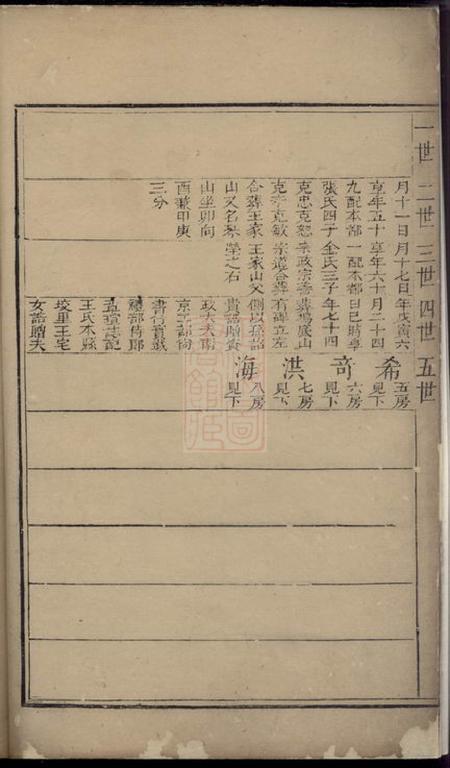 一世 二世 三世 四世 五世
月十一日
享年五十
九配本都
張氏四子
克忠克恕
克孝克敏
合葬王家
山又名琴
山坐卯向
酉兼甲庚
三分
月十七日
享年六十
一配本都
金氏三子
宗政宗善
宗道合葬
王家山父
塋之右
年戊寅六
月二十四
日巳時享
年七十四
葬塢底山
有碑立左
側以孫詔
貴誥贈資
政大夫南
京工部尚
書行實載
禮部侍郎
誌記
王氏本縣
里王宅
女誥贈夫
希
五房
見下
奇
六房
見下
洪
七房
見下
海
八房
見下